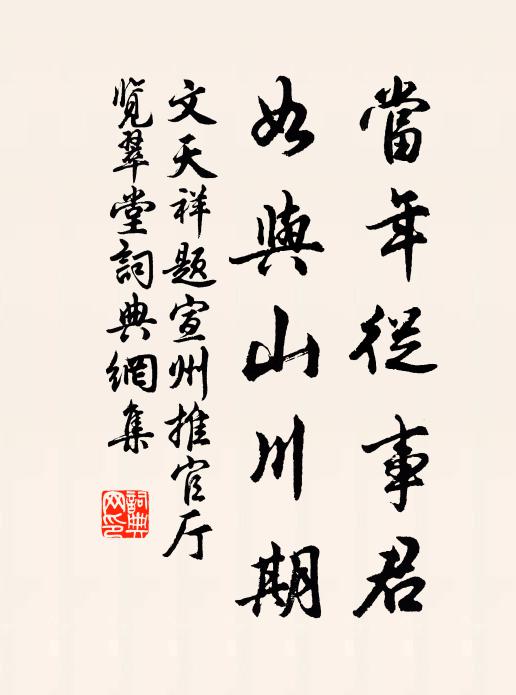 當年從事君
如與山川期
文天祥题宣州推官厅
覽翠堂詞典網集
詞典网印